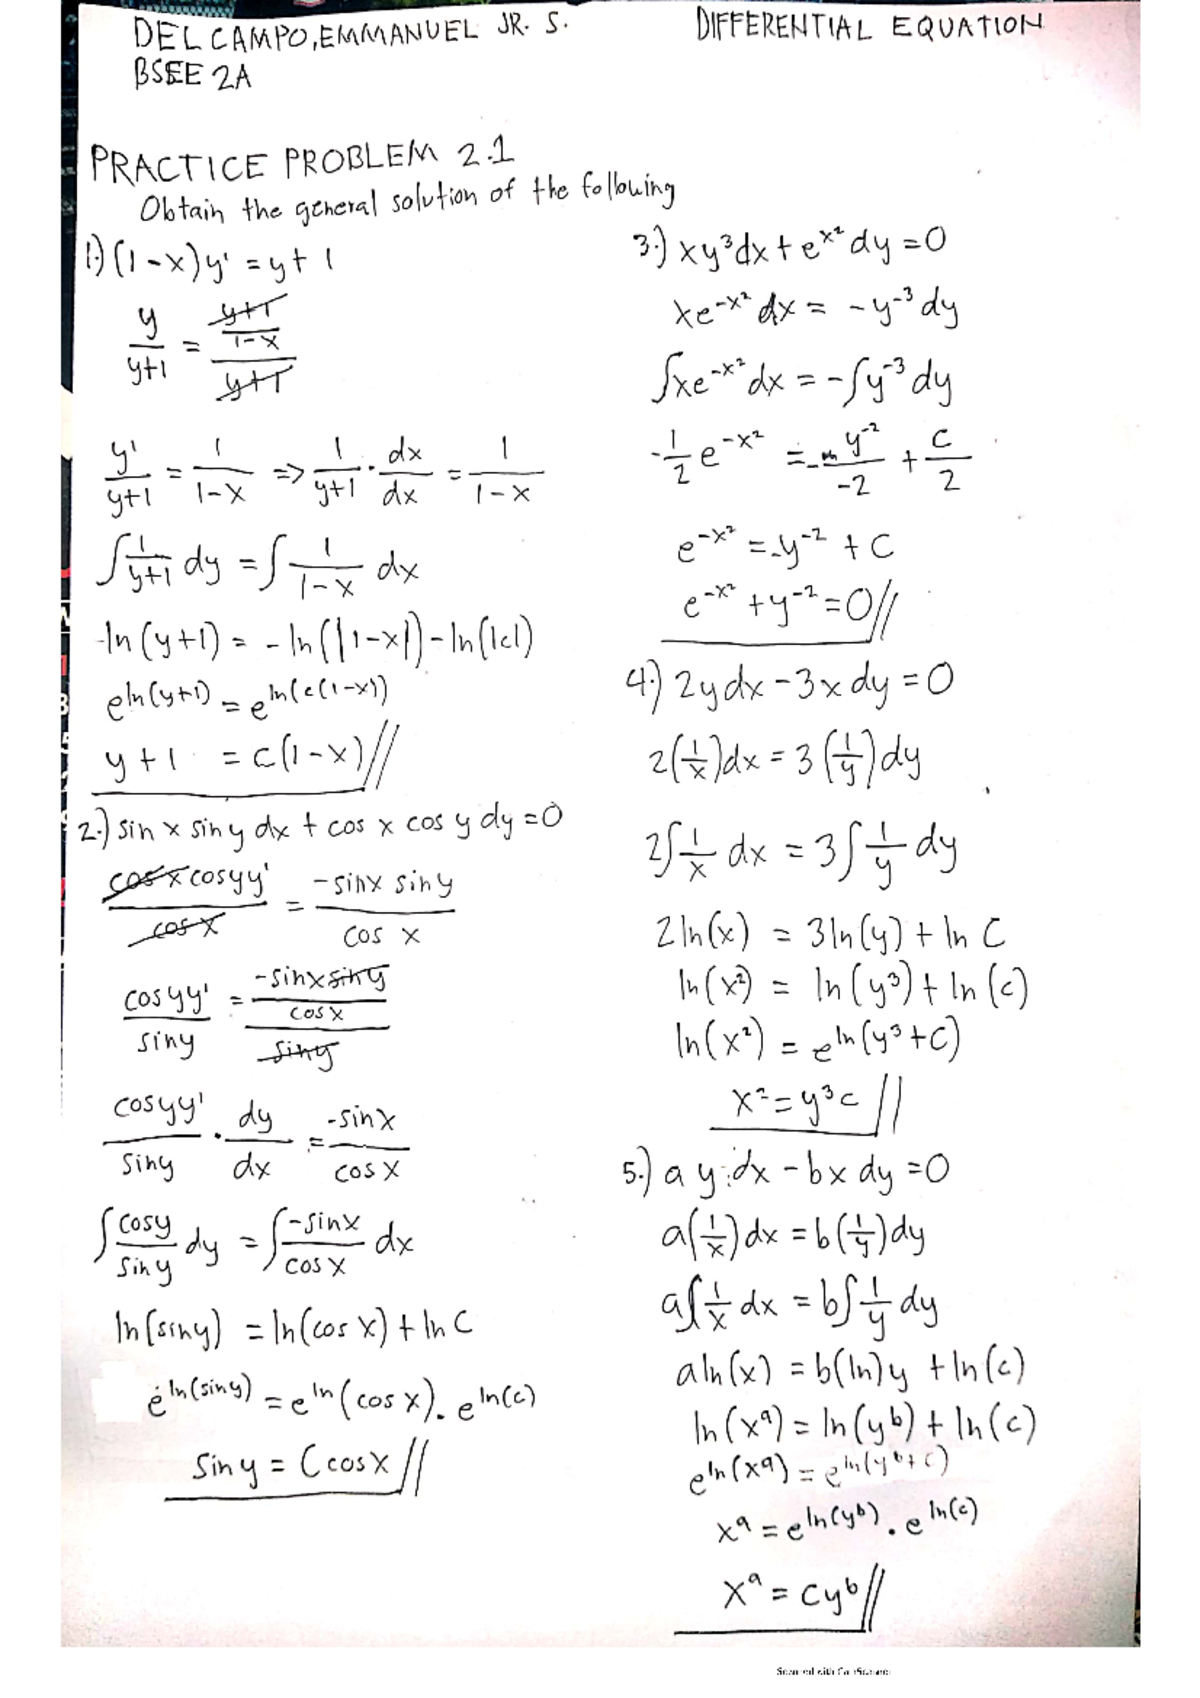 DEL CAMPO, EMMANUEL JR. S.
BSEE 2A
DIFFERENTIAL EQUATION
PRACTICE PROBLEM 2.1
Obtain the general solution of the following
1.) (1-x)y' = y+1
y/(y+1) = ((y+1)/(1-x))/(y+1)
y'/(y+1) = 1/(1-x) => 1/(y+1) · dx/dx = 1/(1-x)
∫ 1/(y+1) dy = ∫ 1/(1-x) dx
-ln(y+1) = -ln(|1-x|) - ln(|c|)
e^ln(y+1) = e^ln(c(1-x))
y+1 = c(1-x)//
2.) sin x sin y dx + cos x cos y dy = 0
cos x cos y y'/cos x = -sin x sin y/cos x
cos y y'/sin y = (-sin x sin y/cos x)/sin y
cos y y'/sin y · dy/dx = -sin x/cos x
∫ cos y/sin y dy = ∫ -sin x/cos x dx
ln(sin y) = ln(cos x) + ln C
e^ln(sin y) = e^ln(cos x) . e^ln(c)
sin y = C cos x //
3.) xy³dx + e^x² dy = 0
xe^-x² dx = -y^-3 dy
∫xe^-x² dx = -∫y^-3 dy
-1/2 e^-x² = - y^-2/-2 + C/2
e^-x² = -y^-2 + C
e^-x² + y^-2 = 0//
4.) 2y dx - 3x dy = 0
2(1/x)dx = 3(1/y)dy
2∫ 1/x dx = 3∫ 1/y dy
2 ln(x) = 3 ln(y) + ln C
ln(x²) = ln(y³) + ln(c)
ln(x²) = e^ln(y³+C)
x² = y³c //
5.) a y dx - bx dy = 0
a(1/x)dx = b(1/y)dy
a∫ 1/x dx = b∫ 1/y dy
a ln(x) = b(ln)y + ln(c)
ln(x^a) = ln(y^b) + ln(c)
e^ln(x^a) = e^ln(y^b+c)
x^a = e^ln(y^b) . e^ln(c)
x^a = cy^b//